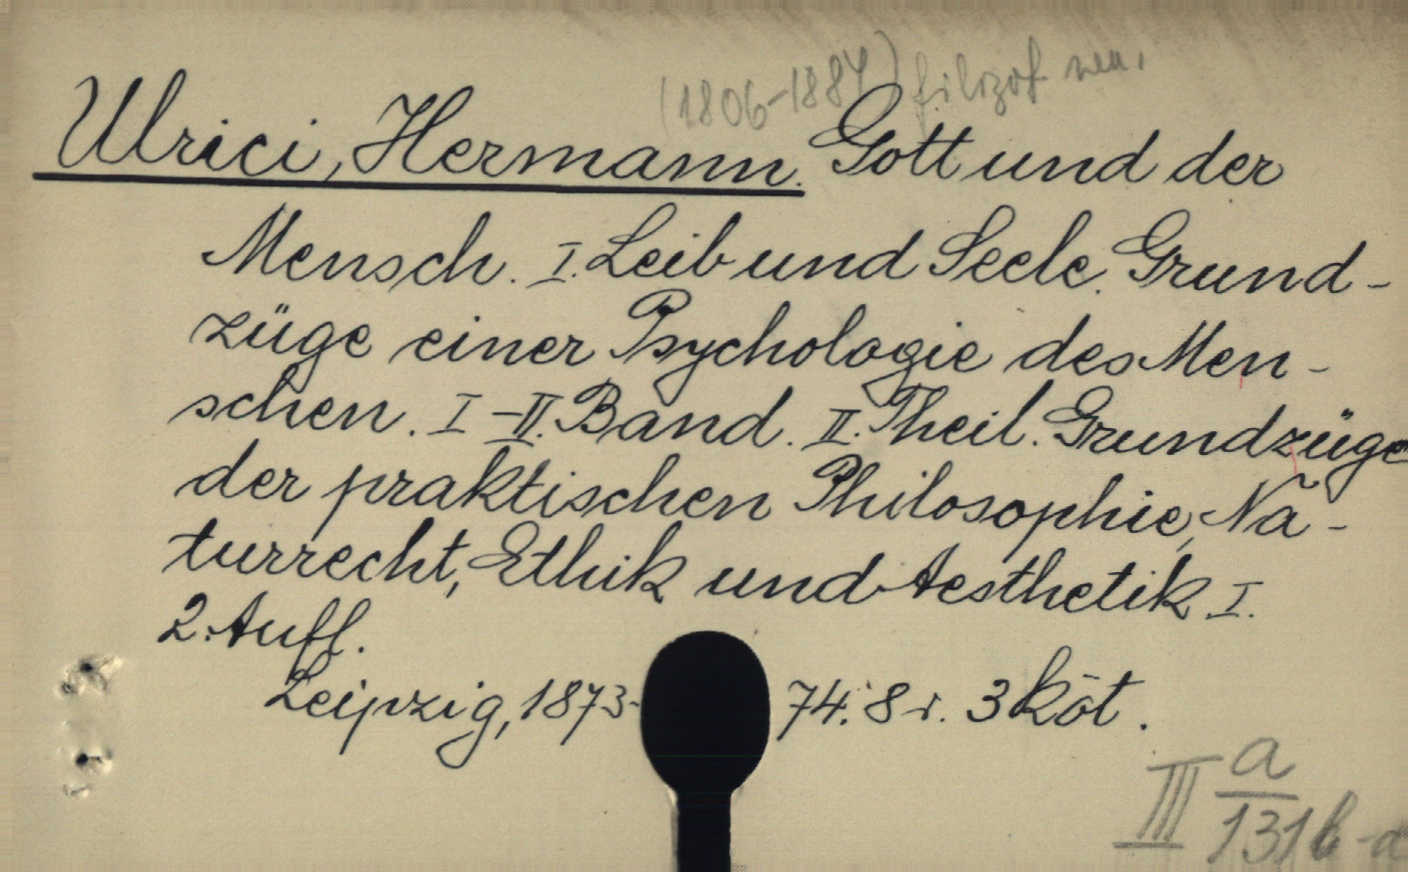 (1806-1884) filozof nem.
Ulrici, Hermann. Gott und der
Mensch. I. Leib und Seele. Grund-
züge einer Psychologie des Men-
schen. I-II. Band. II. Theil. Grundzüge
der praktischen Philosophie, Na-
turrecht, Ethik und Aesthetik I.
2. Aufl.
Leipzig, 1873-74. 8 r. 3 köt.
III a
131 b-